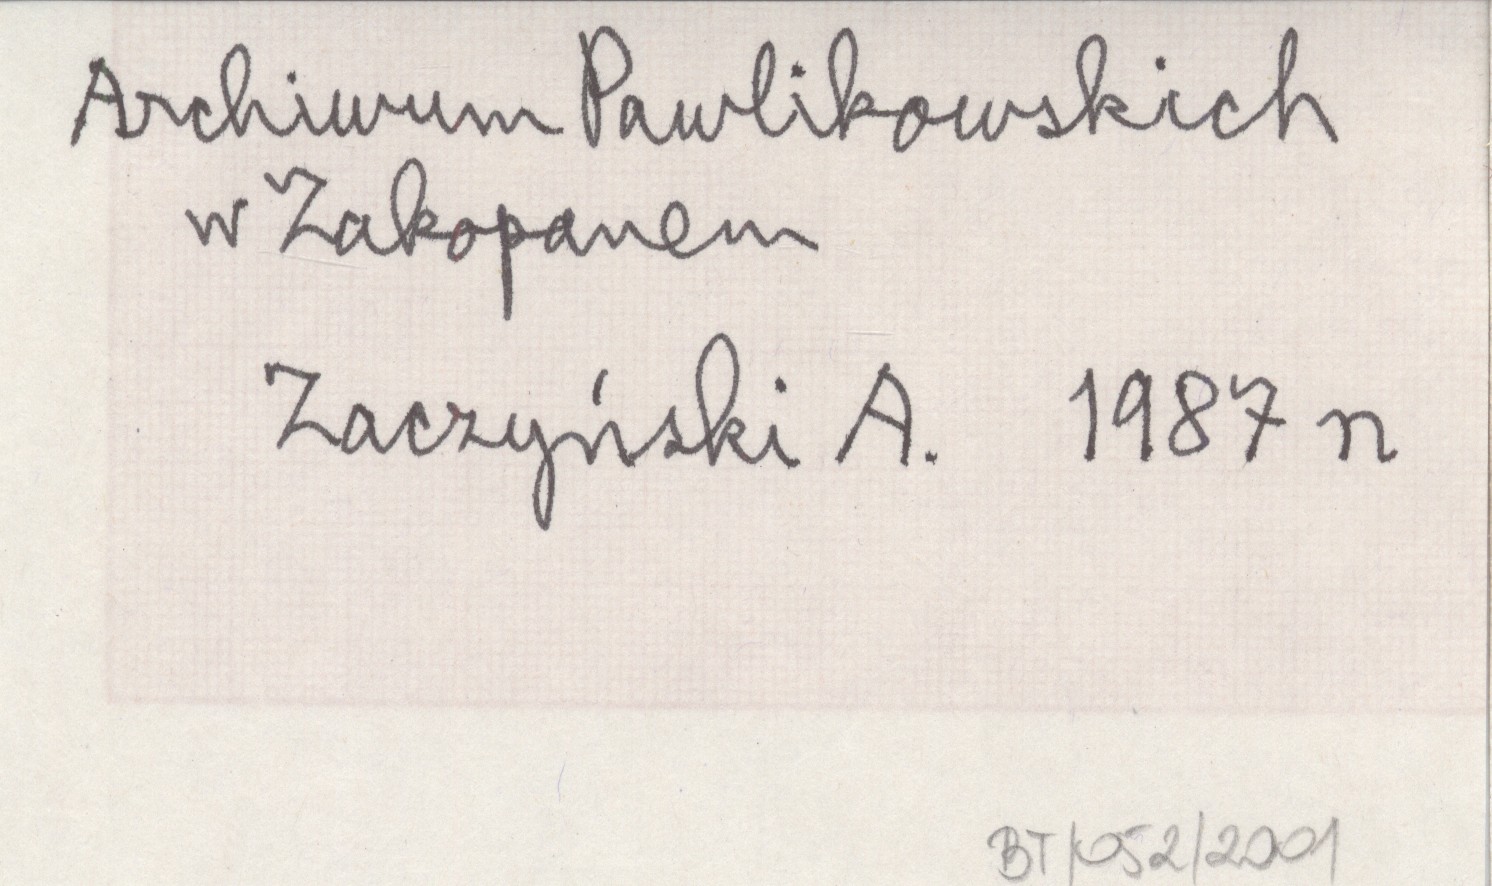 Archiwum Pawlikowskich
w Zakopanem
Zaczyński A. 1987 n
BT/052/2001